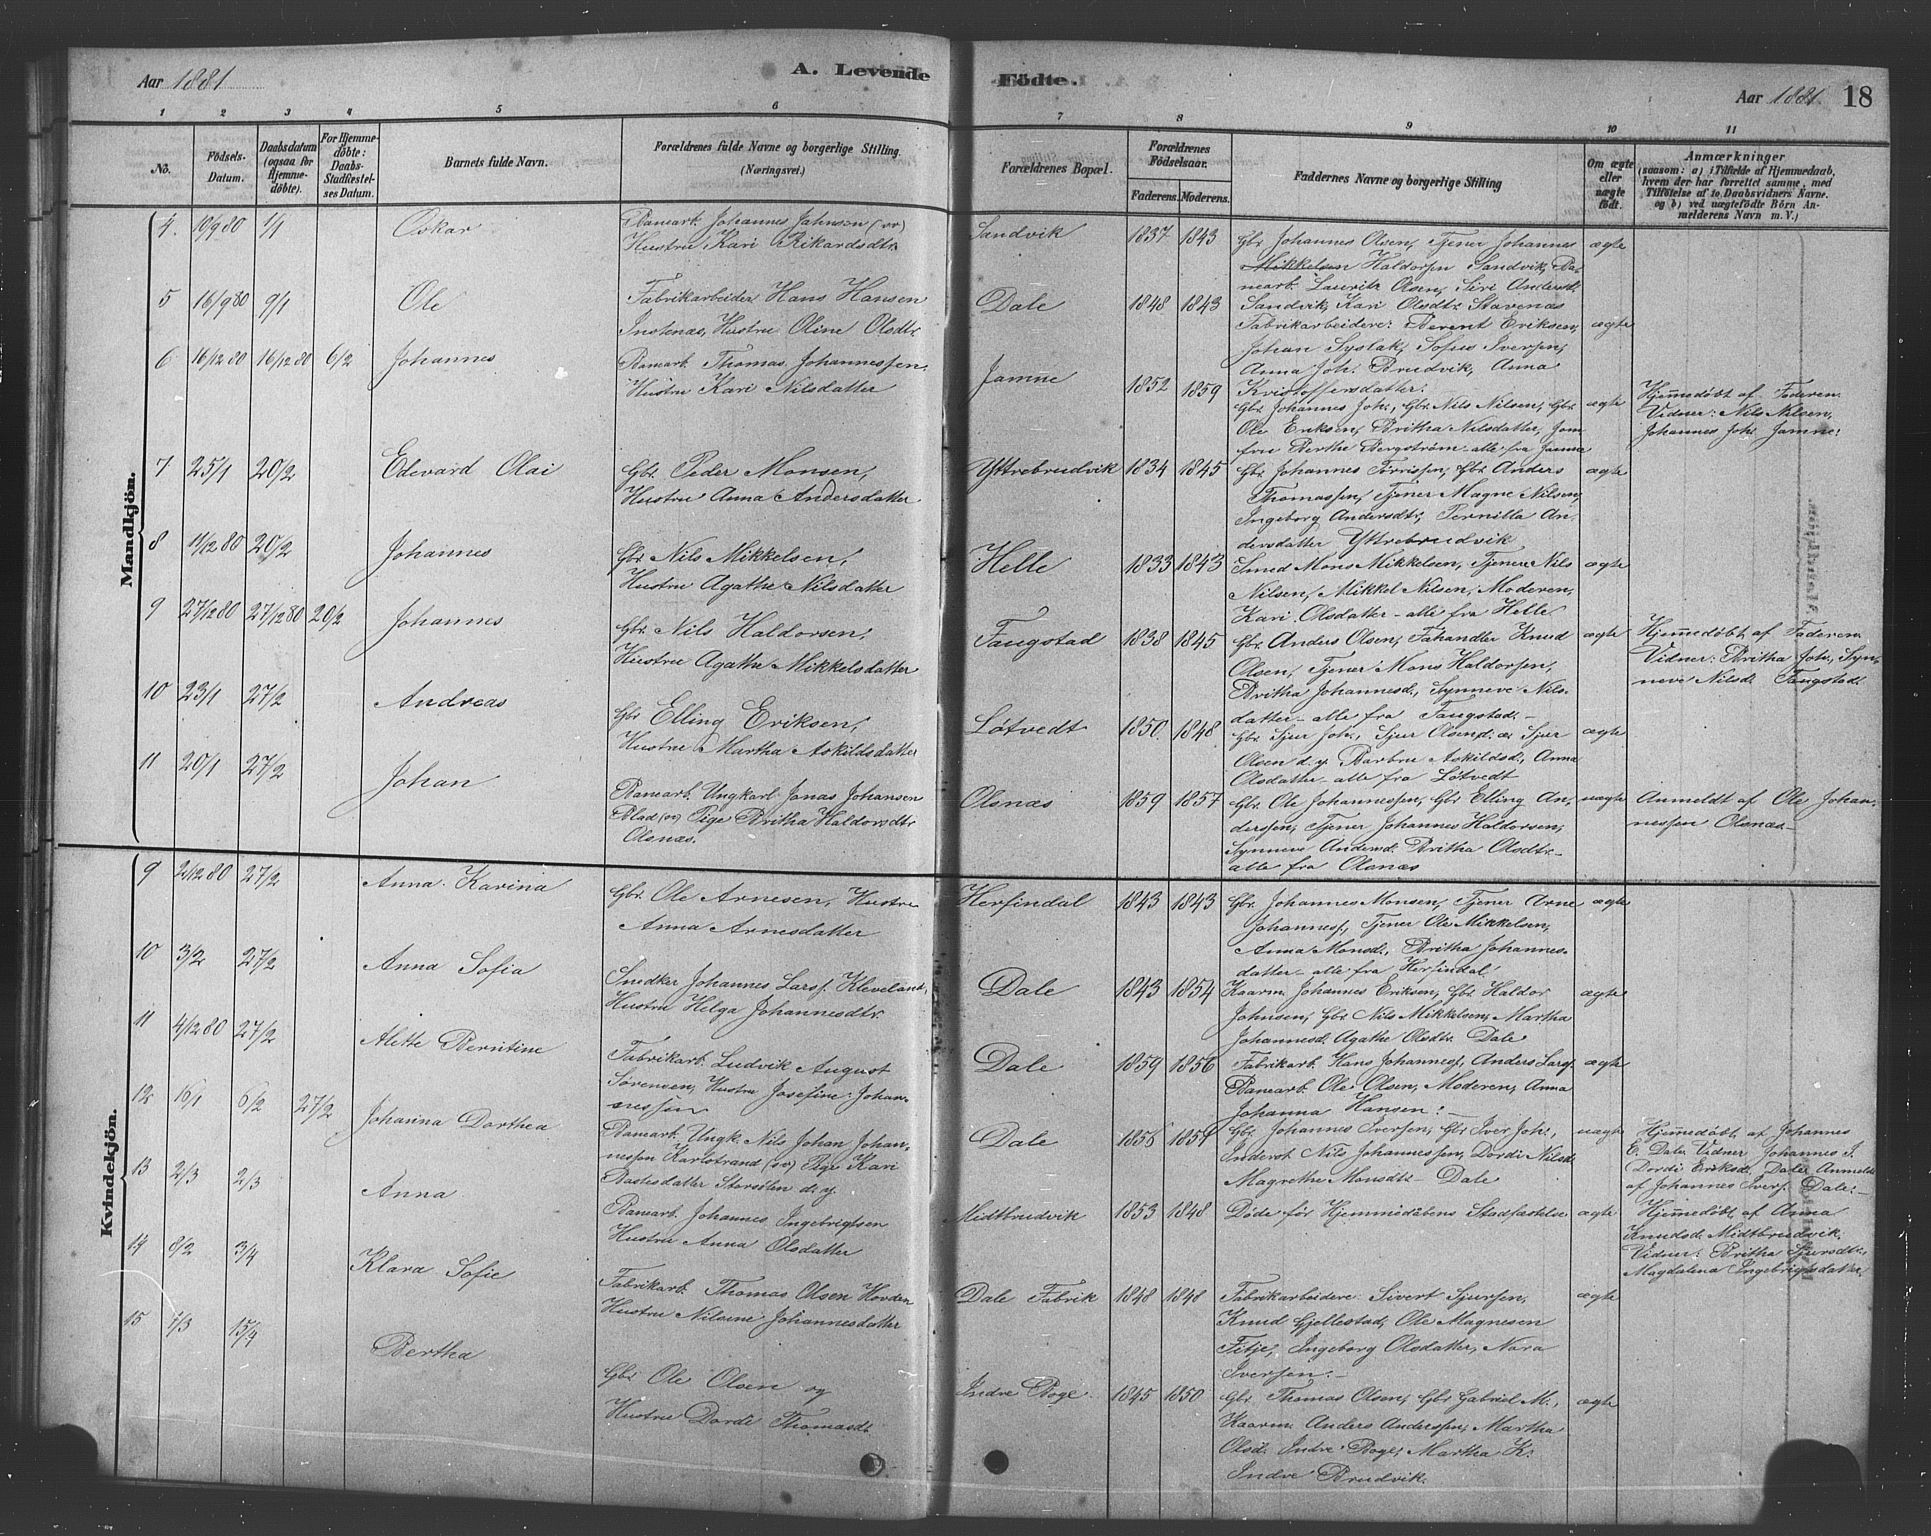 Aar 1881
A. Levende Födte.
Aar 1881. 18
1 2 3 4 5 6 7 8 9 10 11
No.
Födsels-
Datum.
Daabsdatum
(ogsaa for
Hjemme-
döbte).
For Hjemme-
döbte:
Daabs-
Stadfæstel-
ses Datum.
Barnets fulde Navn.
Forældrenes fulde Navne og borgerlige Stilling
(Næringsvei.)
Forældrenes Bopæl.
Forældrenes
Födselsaar.
Faderens. Moderens.
Faddernes Navne og borgerlige Stilling
Om ægte
eller
uægte
födt.
Anmærkninger
(saasom: a) i Tilfælde af Hjemmedaab,
hvem der har forrettet samme, med
Tilföielse af to Daabsvidners Navne.
og b) ved uægtefödte Börn An-
melderens Navn m. V.)
Mandkjön.
4. 10/9 80 1/1 Oskar
Banearb. Johannes Jahnsen (sv)
Hustru Kari Rikardsdtr
Sandvik 1837 1843
Gbr. Johannes Olsen, Tjener Johannes
Mikkelsen Haldorsen Sandvik, Ba-
nearb. Lauritz Olsen, Siri Andersd.
Sandvik, Kari Olsdtr. Stavenas
ægte
5 16/9 80 9/1 Ole
Fabrikarbeider Hans Hansen
Instenæs, Hustru Oline Olsdtr
Dale 1848 1843
Fabrikarbeidere: Berent Eriksen,
Johan Syslak, Sofus Iversen,
Anna Joh. Brudvik, Anna
Kristoffersdatter.
ægte
6 16/12 80 16/12 80 6/2 Johannes
Banearb. Thomas Johannessen
Hustru Kari Nilsdatter
Jamne 1852 1859
Gbr. Johannes Joh., Gbr. Nils Nilsen, Gbr.
Ole Eriksen, Britha Nilsdatter, Jom
fru Berthe Bergström - alle fra Jamne
ægte
Hjemmedøbt af Faderen.
Vidner: Nils Nilsen,
Johannes Joh. Jamne.
7 25/1 20/2 Edevard Olai
Gbr. Peder Monsen,
Hustru Anna Andersdatter
Yttrebrudvik 1834 1845
Gbr. Johannes Torrissen, Gbr. Anders
Thomassen, Tjener Magne Nilsen,
Ingeborg Andersdtr, Pernilla An-
dersdatter Yttrebrudvik
ægte
8 11/12 80 20/2 Johannes
Gbr. Nils Mikkelsen,
Hustru Agathe Nilsdatter
Helle 1833 1843
Smed Mons Mikkelsen, Tjenere Nils
Nilsen, Mikkel Nilsen, Moderen,
Kari Olsdatter - alle fra Helle
ægte
9 27/12 80 27/12 80 20/2 Johannes
Gbr. Nils Haldorsen.
Hustru Agathe Mikkelsdatter
Fangstad 1838 1845
Gbr. Anders Olsen, Fahandler Knud
Olsen, Tjener Mons Haldorsen,
Britha Johannesd., Synneve Nils-
datter - alle fra Fangstad. -
ægte
Hjemmedøbt af Faderen
Vidner: Britha Joh., Syn-
neve Nilsd. Fangstad.
10 23/1 27/2 Andreas
Gbr. Elling Eriksen,
Hustru Martha Askildsdatter
Løtvedt 1850. 1848
Gbr. Sjur Joh., Sjur Olsen d. æ. Sjur
Olsen d. y. Barbru Askildsd., Anna
Olsdatter - alle fra Løtvedt
ægte
11 20/1 27/2 Johan
Banearb. Ungkarl Jonas Johansen
Blad (sv) Pige Britha Haldorsdtr
Olsnæs.
Olsnæs 1859 1857
Gbr. Ole Johannessen, Gbr. Elling An-
derssen, Tjener Johannes Haldorsen,
Synneve Andersd. Britha Olsdtr. -
alle fra Olsnæs
uægte
Anmeldt af Ole Johan-
nessen Olsnæs. -
Kvindekjön.
9 2/12 80 27/2 Anna Karina
Gbr. Ole Arnesen, Hustru
Anna Arnesdatter
Herfindal 1843 1843
Gbr. Johannes Monsen, Tjener Arne
Johannesf., Tjener Ole Mikkelsen,
Anna Monsd., Britha Johannes-
datter - alle fra Herfindal
ægte
10 3/2 27/2 Anna Sofia
Snedker Johannes Larsf. Kleveland,
Hustru Helga Johannesdtr.
Dale 1843 1854
Kaarm. Johannes Eriksen, Gbr. Haldor
Johnsen, Gbr. Nils Mikkelsen, Martha
Johannesd. Agathe Olsdtr. Dale
ægte
11 4/12 80 27/2 Alette Berntine
Fabrikarb. Ludvik August
Sørensen, Hustru Josefine Johan-
nessen
Dale 1859 1856
Fabrikarb. Hans Johannesf., Anders Larsf.
Banearb. Ole Olsen, Moderen, Anna
Johanna Hansen. -
ægte
12 16/1 6/2 27/2 Johanna Dorthea
Banearb. Ungk. Nils Johan Johan-
nessen Karlstrand (sv) Pige Kari
Bastesdatter Storsølen d. y.
Dale
Gbr. Johannes Iversen, Gbr. Iver Joh.,
Inderst Nils Johannessen, Dordi Nilsd.
Magrethe Monsdtr. - Dale
uægte
Hjemmedøbt af Johannes
E. Dale. Vidner Johannes I.
Dordi Eriksd. Dale. Anmeldt
af Johannes Iversf. Dale. -
13 2/3 2/3 Anna
Banearb. Johannes Ingebrigtsen
Hustru Anna Olsdatter
Midtbrudvik 1853 1848
Døde før Hjemmedåbens Stadfæstelse
ægte
Hjemmedøbt af Anna
Knudsd. Midtbrudvik.
Vidner: Britha Sjursdtr.,
Magdalena Ingebrigtsdatter
14 8/2 3/4 Klara Sofie
Fabrikarb. Thomas Olsen Hovden
Hustru Nilsine Johannesdatter
Dale Fabrik 1848 1848
Fabrikarbeidere: Sivert Sjursen,
Knud Gjellestad, Ole Magnesen
Fitje, Ingeborg Olsdatter, Nora
Iversen. -
ægte
15 1/3 15/4 Bertha
Gbr. Ole Olsen og
Hustru Dordi Thomasdt.
Indre Boge 1845 1850
Gbr. Thomas Olsen, Gbr. Gabriel M.,
Kaarm. Anders Anderssen, Martha
Olsd. Indre Boge, Martha K.
Indre Brudvik.
ægte